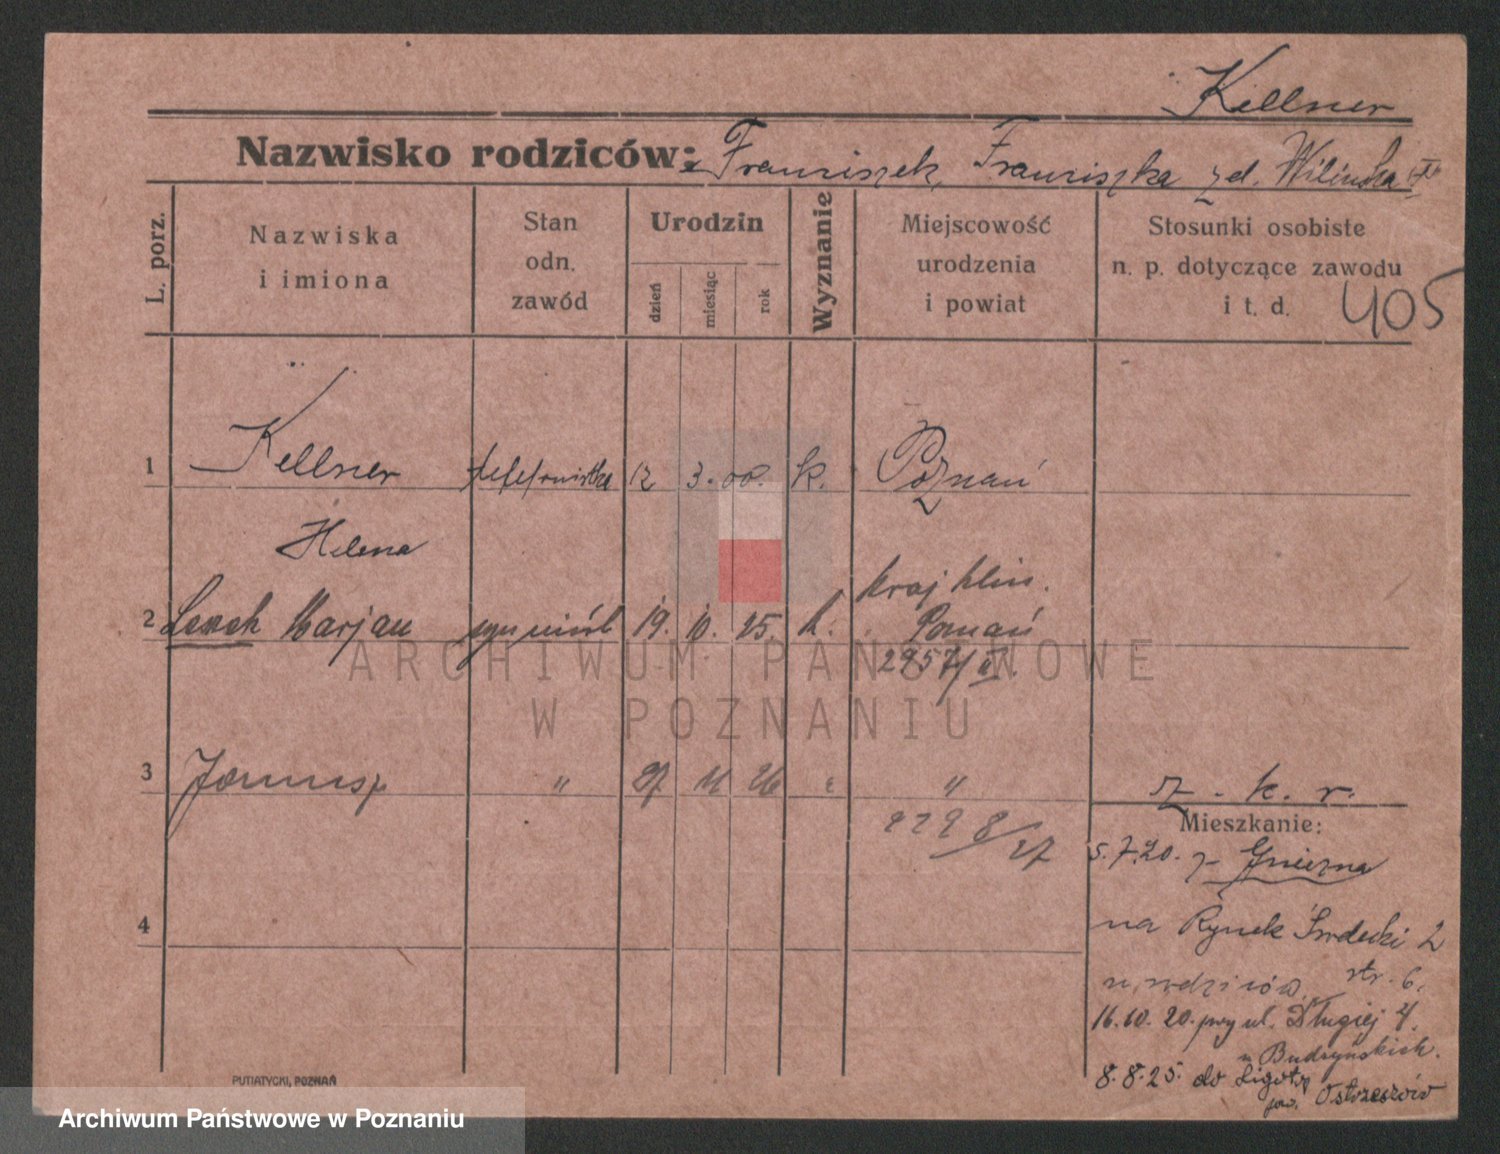 Kellner
Nazwisko rodziców: Franciszek, Franciszka zd. Wilińska
L. porz.
Nazwiska i imiona
Stan odn. zawód
Urodzin
dzień
miesiąc
rok
Wyznanie
Miejscowość urodzenia i powiat
Stosunki osobiste n. p. dotyczące zawodu i t. d.
405
1 Kellner telefonistka 12 3. 00. k. Poznań
Helena
kraj klin.
2 Marjan 19. 10. 25. k. Poznań
2957/II.
3 Janusz " 27 11 26 " "
z. k. r.
2298/27
Mieszkanie:
5.7.20. z Gniezna
4
na Rynek Śródecki 2
u rodziców str. 6.
16.10.20. przy ul. Długiej 4.
u Budzyńskich.
8.8.25. do Ligoty
pow. Ostrzeszów
PUTIATYCKI, POZNAŃ
ARCHIWUM PAŃSTWOWE
W POZNANIU
Archiwum Państwowe w Poznaniu